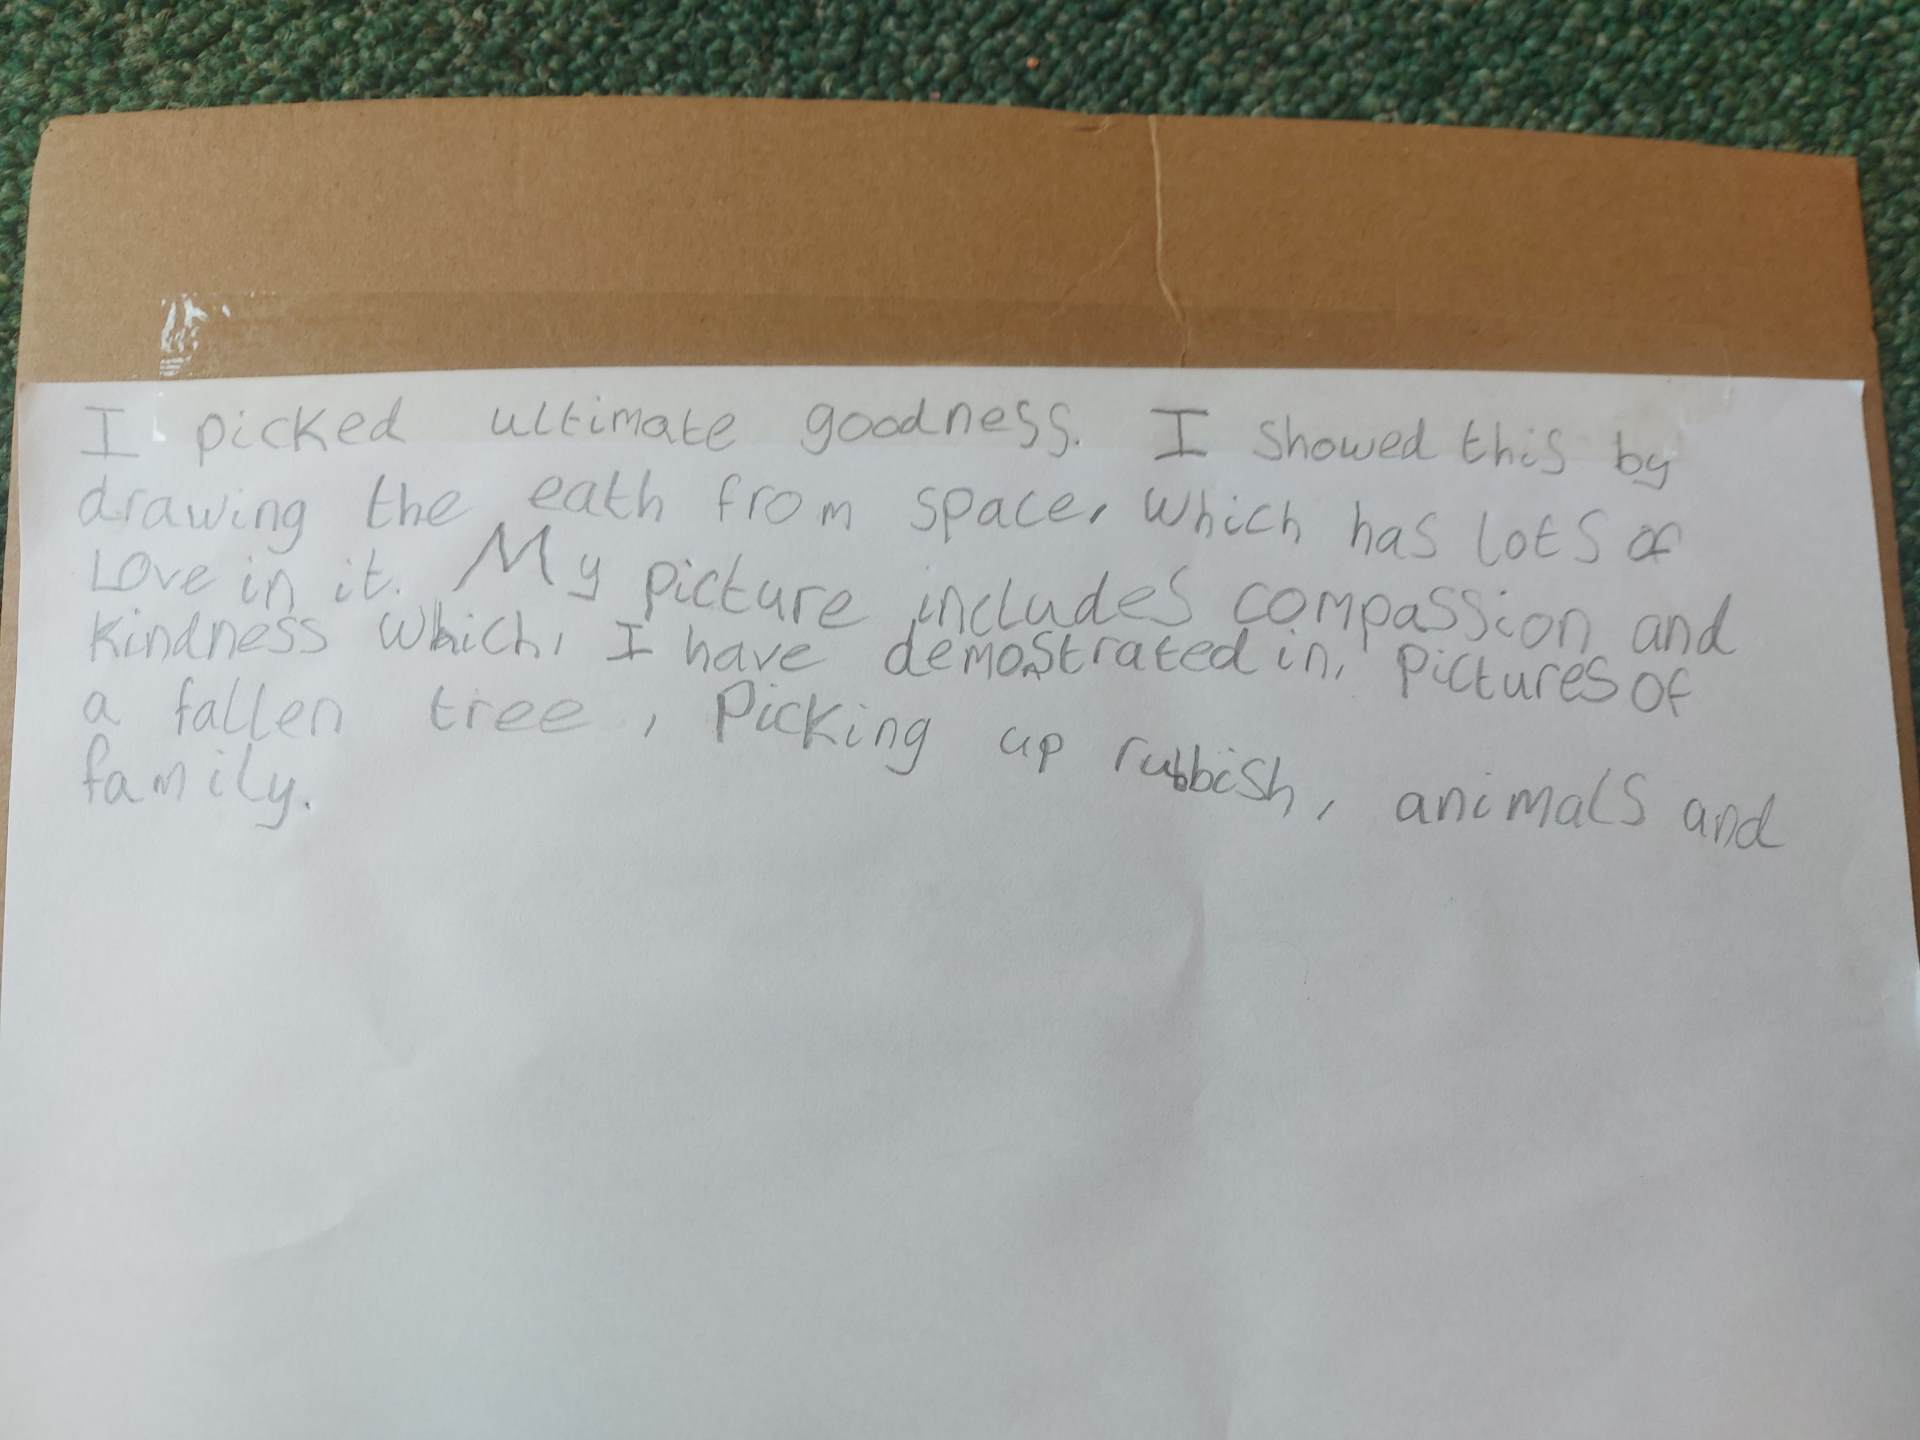 I picked ultimate goodness. I showed this by
drawing the eath from space, which has lots of
Love in it. My picture includes compassion and
kindness which, I have demostrated in, pictures of
a fallen tree, Picking up rubbish, animals and
family.